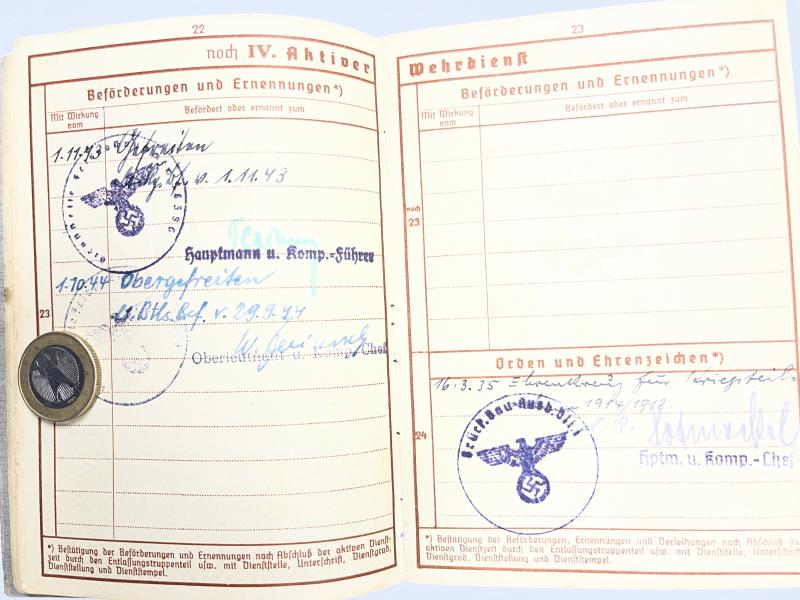 22
noch IV. Aktiver
Beförderungen und Ernennungen*)
Mit Wirkung vom
Befördert oder ernannt zum
1.11.43 Gefreiten
v. 1.11.43
Hauptmann u. Komp.-Führer
1.10.44 Obergefreiten
v. 29.9.44
23
Oberleutnant u. Komp.-Chef
*) Bestätigung der Beförderungen und Ernennungen nach Abschluß der aktiven Dienst-
zeit durch den Entlassungstruppenteil usw. mit Dienststelle, Unterschrift, Dienstgrad,
Dienststellung und Dienststempel.
23
Wehrdienst
Beförderungen und Ernennungen*)
Mit Wirkung vom
Befördert oder ernannt zum
noch
23
Orden und Ehrenzeichen*)
16.3.35 Ehrenkreuz für Kriegsteil-
1914/1918
24
Hptm. u. Komp.-Chef
*) Bestätigung der Beförderungen, Ernennungen und Verleihungen nach Abschluß der
aktiven Dienstzeit durch den Entlassungstruppenteil usw. mit Dienststelle, Unterschrift,
Dienstgrad, Dienststellung und Dienststempel.